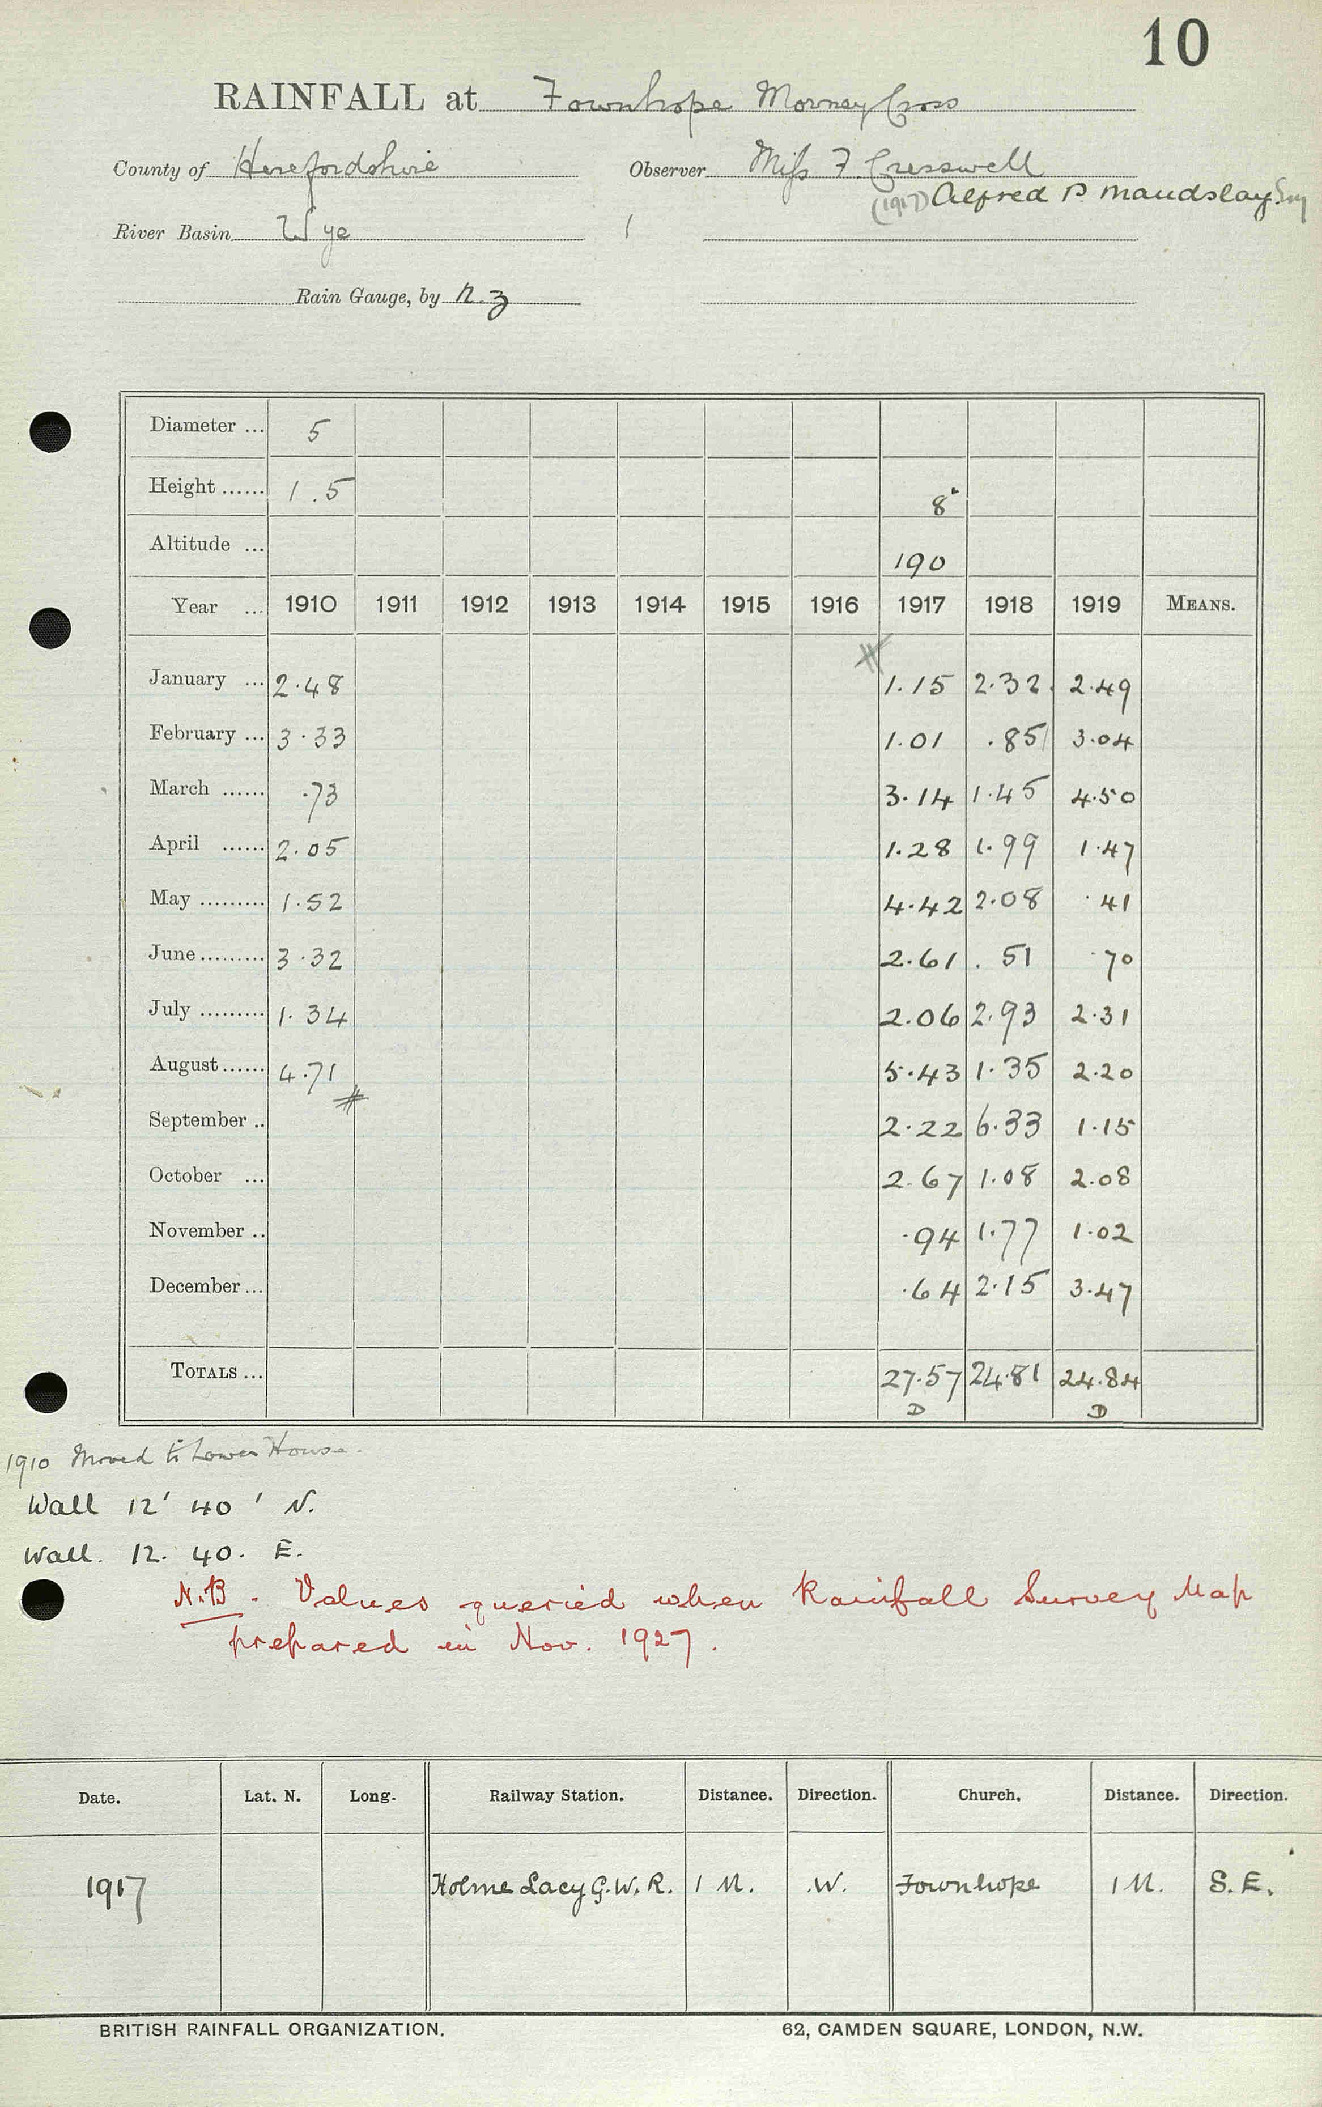 10
RAINFALL at Fownhope Morney Cross
County of Herefordshire Observer Miss F. Cresswell
(1917) Alfred P Maudslay Esq
River Basin Wye 1
Rain Gauge, by N.Z
Diameter ... 5
Height ...... 1.5 8"
Altitude ... 190
Year ... 1910 1911 1912 1913 1914 1915 1916 1917 1918 1919 MEANS.
January ... 2.48 1.15 2.32 2.49
February ... 3.33 1.01 .85 3.04
March ...... .73 3.14 1.45 4.50
April ...... 2.05 1.28 1.99 1.47
May ......... 1.52 4.42 2.08 .41
June ......... 3.32 2.61 .51 .70
July ......... 1.34 2.06 2.93 2.31
August ...... 4.71 5.43 1.35 2.20
September .. 2.22 6.33 1.15
October ... 2.67 1.08 2.08
November .. .94 1.77 1.02
December ... .64 2.15 3.47
TOTALS ... 27.57 24.81 24.84
D D
1910 Moved to Lower House
Wall 12' 40' N.
Wall. 12. 40. E.
N.B. Values queried when Rainfall Survey Map
prepared in Nov. 1927.
Date. Lat. N. Long. Railway Station. Distance. Direction. Church. Distance. Direction.
1917 Holme Lacy G.W.R. 1 M. W. Fownhope 1 M. S.E.
BRITISH RAINFALL ORGANIZATION. 62, CAMDEN SQUARE, LONDON, N.W.